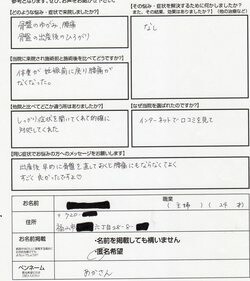 【どのような悩み・症状で来院しましたか？】
骨盤のゆがみ、腰痛
骨盤の出産後のひろがり
【その悩み・症状を解決するために何かしましたか？
また、その結果、効果はありましたか？（他の治療など）】
なし
【当院に来院され施術前と施術後を比べてどうですか？】
体重が妊娠前に戻り腰痛が
なくなった。
【他院と比べてどこか違う所はありましたか？】
しっかり症状を聞いてくれて的確に
対処してくれた
【なぜ当院を選ばれたのですか？】
インターネットで口コミを見て
【同じ症状でお悩みの方へのメッセージをお願いします】
出産後早めに骨盤を直しておくと腰痛にもならなくてよく
すごく良かったですよ
お名前
職業
（主婦）
住所
〒920-
福山市
丁目28-8-
お名前掲載
・名前を掲載しても構いません
・匿名希望
ペンネーム
あかさん